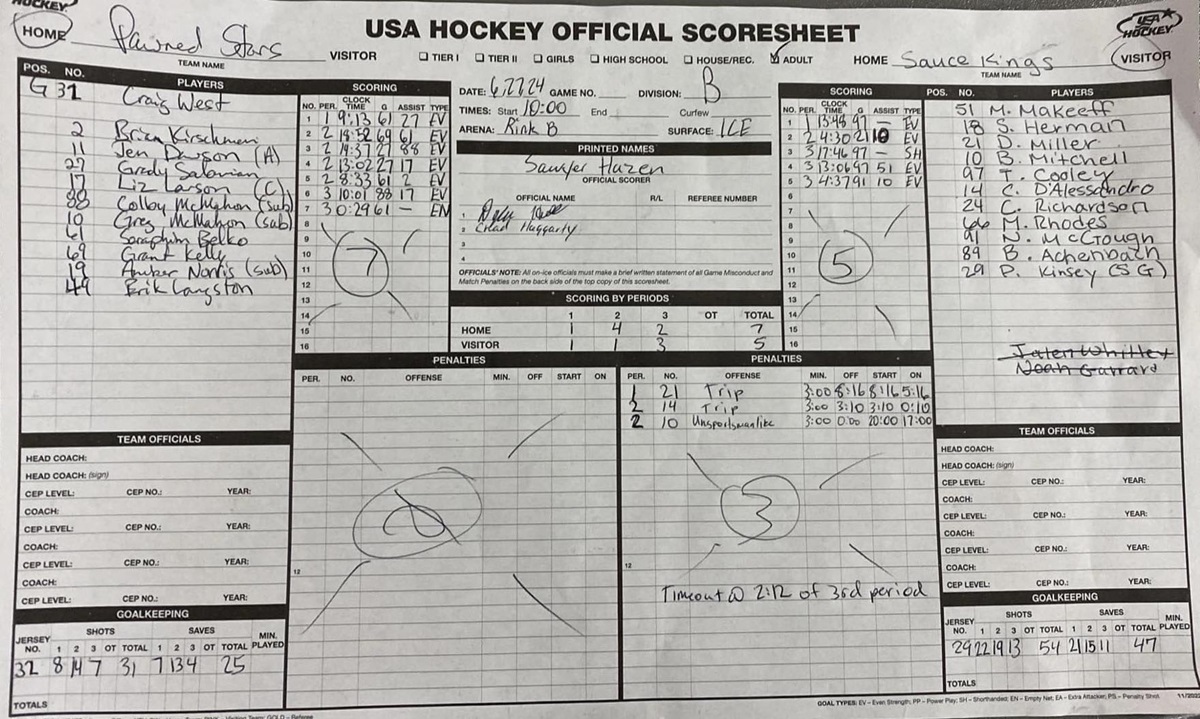 HOCKEY
USA HOCKEY OFFICIAL SCORESHEET
USA HOCKEY
HOME Pawned Stars
TEAM NAME
VISITOR
☐ TIER I ☐ TIER II ☐ GIRLS ☐ HIGH SCHOOL ☐ HOUSE/REC. ☑ ADULT
HOME Sauce Kings VISITOR
TEAM NAME
POS. NO. PLAYERS
G 32 Craig West
2 Brian Kirschman
11 Jen Dawson (A)
27 Grady Salovian
17 Liz Larson (C)
88 Colby McMahon (sub)
10 Greg McMahon (sub)
61 Soraphim Belko
69 Grant Kelly
19 Amber Norris (sub)
49 Erik Langston
SCORING
NO. PER. CLOCK TIME G ASSIST TYPE
1 1 9:13 61 27 EV
2 2 18:52 69 61 EV
3 2 14:37 27 88 EV
4 2 13:02 27 17 EV
5 2 8:33 61 2 EV
6 3 10:01 88 17 EV
7 3 0:29 61 – EN
8
9
10
11
12
13
14
15
16
7
DATE: 6/27/24 GAME NO. DIVISION: B
TIMES: Start 10:00 End Curfew
ARENA: Rink B SURFACE: ICE
PRINTED NAMES
Sawyer Hazen
OFFICIAL SCORER
OFFICIAL NAME R/L REFEREE NUMBER
1
2 Chad Haggarty
3
4
OFFICIALS' NOTE: All on-ice officials must make a brief written statement of all Game Misconduct and
Match Penalties on the back side of the top copy of this scoresheet.
SCORING BY PERIODS
1 2 3 OT TOTAL
HOME 1 4 2 7
VISITOR 1 1 3 5
SCORING
NO. PER. CLOCK TIME G ASSIST TYPE
1 1 13:48 97 – EV
2 2 4:30 21 10 EV
3 3 17:46 97 – SH
4 3 13:06 97 51 EV
5 3 4:37 91 10 EV
6
7
8
9
10
11
12
13
14
15
16
5
POS. NO. PLAYERS
51 M. Makeeff
18 S. Herman
21 D. Miller
10 B. Mitchell
97 T. Cooley
14 C. D'Alessandro
24 C. Richardson
66 M. Rhodes
91 N. McGough
89 B. Achenbach
29 P. Kinsey (SG)
Jalen Whitley
Noah Garrard
PENALTIES
PER. NO. OFFENSE MIN. OFF START ON
12
PENALTIES
PER. NO. OFFENSE MIN. OFF START ON
1 21 Trip 3:00 8:16 8:16 5:16
2 14 Trip 3:00 3:10 3:10 0:10
2 10 Unsportsmanlike 3:00 0:00 20:00 17:00
3
12
Timeout @ 2:12 of 3rd period
TEAM OFFICIALS
HEAD COACH:
HEAD COACH: (sign)
CEP LEVEL: CEP NO.: YEAR:
COACH:
CEP LEVEL: CEP NO.: YEAR:
COACH:
CEP LEVEL: CEP NO.: YEAR:
COACH:
CEP LEVEL: CEP NO.: YEAR:
GOALKEEPING
JERSEY NO. SHOTS 1 2 3 OT TOTAL SAVES 1 2 3 OT TOTAL MIN. PLAYED
32 8 14 7 31 7 13 4 25
TOTALS
TEAM OFFICIALS
HEAD COACH:
HEAD COACH: (sign)
CEP LEVEL: CEP NO.: YEAR:
COACH:
CEP LEVEL: CEP NO.: YEAR:
COACH:
CEP LEVEL: CEP NO.: YEAR:
COACH:
CEP LEVEL: CEP NO.: YEAR:
GOALKEEPING
JERSEY NO. SHOTS 1 2 3 OT TOTAL SAVES 1 2 3 OT TOTAL MIN. PLAYED
29 22 19 13 54 21 15 11 47
TOTALS
GOAL TYPES: EV – Even Strength; PP – Power Play; SH – Shorthanded; EN – Empty Net; EA – Extra Attacker; PS – Penalty Shot